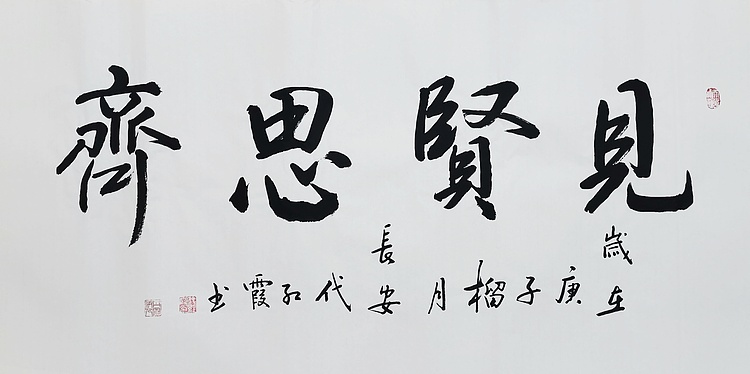 見賢思齊
歲在庚子榴月長安代紅霞书